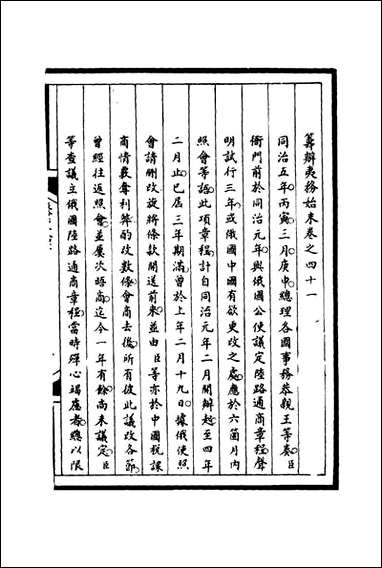 籌辦夷務始末卷之四十一
同治五年丙寅三月庚申總理各國事務恭親王等奏臣
衙門前於同治元年與俄國公使議定陸路通商章程聲
明試行三年或俄國中國有欲更改之處應於六箇月內
照會等語此項章程計自同治元年二月開辦起至四年
二月止已屆三年期滿曾於上年二月十九日據俄使照
會請刪改旋將條款開送前來並由臣等亦於中國稅課
商情數奪利弊酌改數條會商去後所有彼此議改各節
曾經往返照會並屢次晤商迄今一年有餘尚未議定臣
等查議立俄國陸路通商章程當時殫心竭慮者總以限